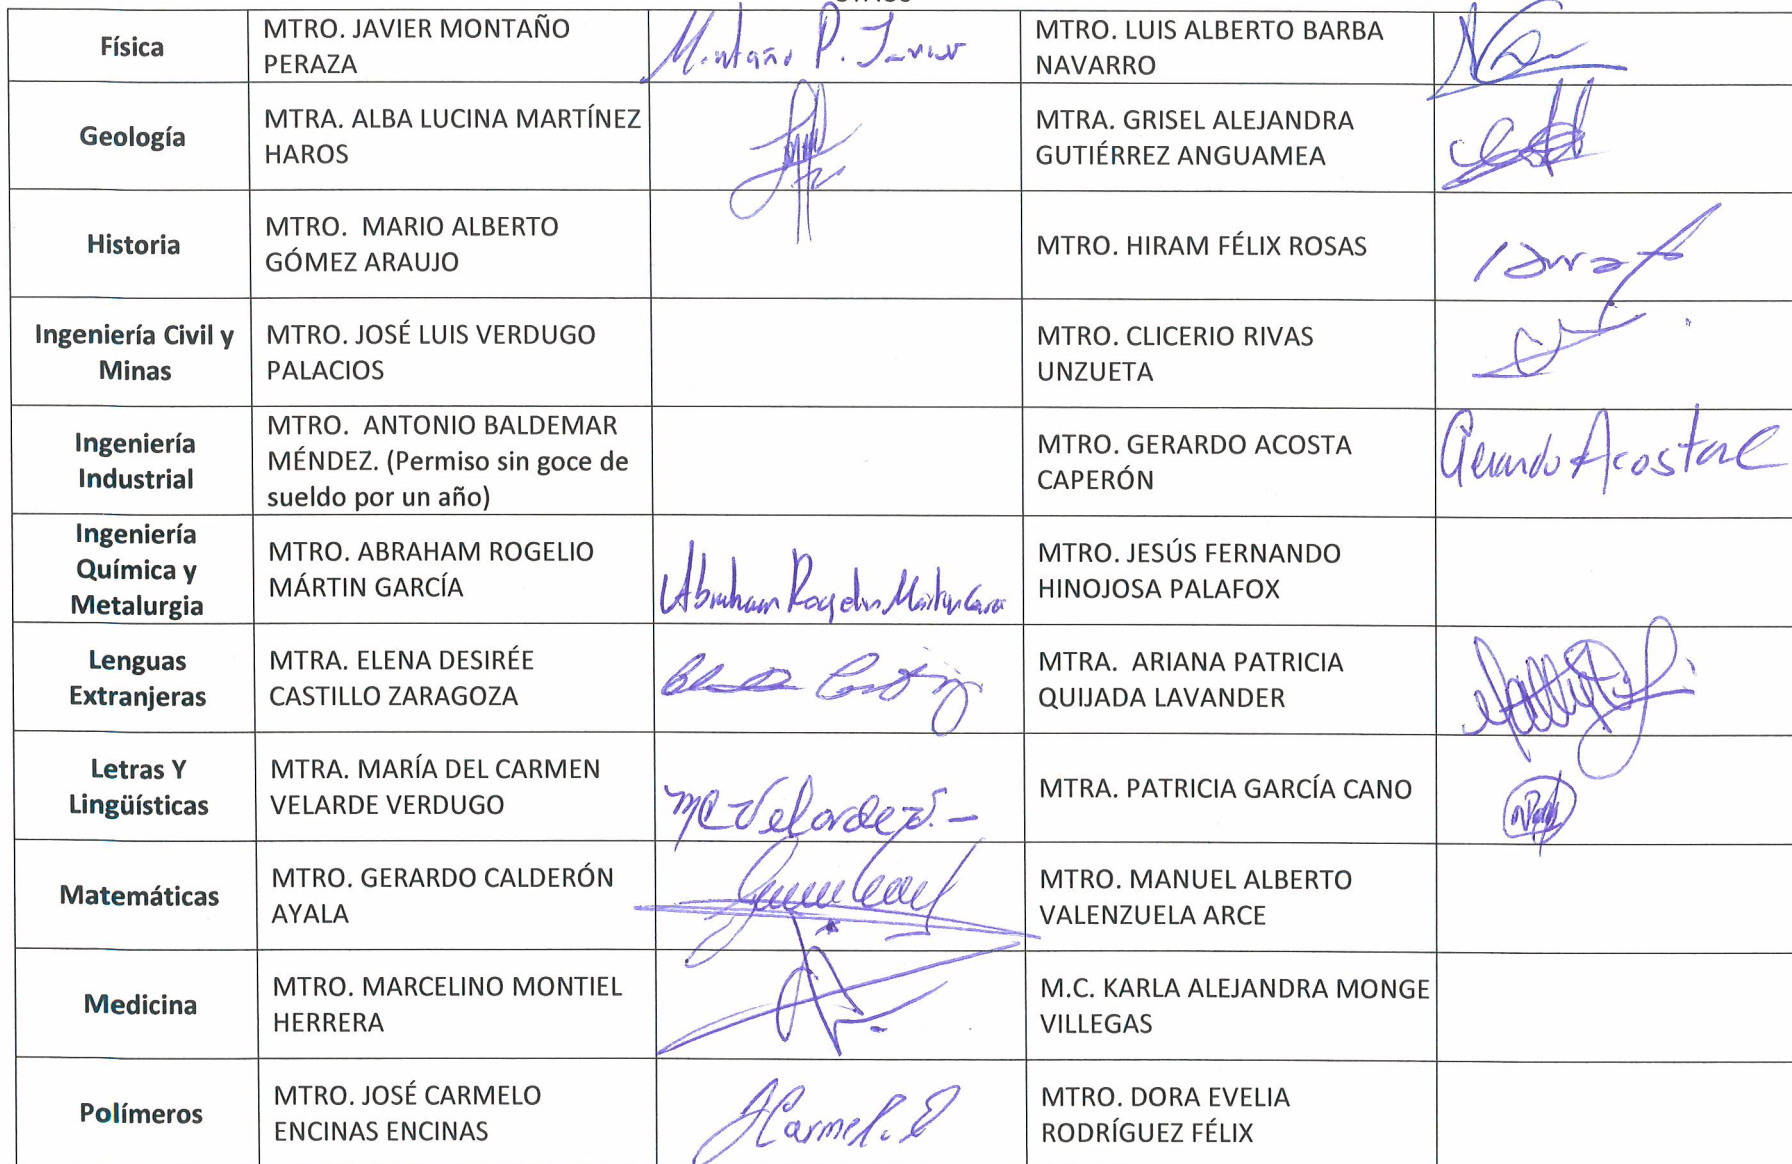 Física
MTRO. JAVIER MONTAÑO
PERAZA
Montaño P. Javier
MTRO. LUIS ALBERTO BARBA
NAVARRO
Geología
MTRA. ALBA LUCINA MARTÍNEZ
HAROS
MTRA. GRISEL ALEJANDRA
GUTIÉRREZ ANGUAMEA
Historia
MTRO. MARIO ALBERTO
GÓMEZ ARAUJO
MTRO. HIRAM FÉLIX ROSAS
Ingeniería Civil y
Minas
MTRO. JOSÉ LUIS VERDUGO
PALACIOS
MTRO. CLICERIO RIVAS
UNZUETA
Ingeniería
Industrial
MTRO. ANTONIO BALDEMAR
MÉNDEZ. (Permiso sin goce de
sueldo por un año)
MTRO. GERARDO ACOSTA
CAPERÓN
Gerardo Acosta C
Ingeniería
Química y
Metalurgia
MTRO. ABRAHAM ROGELIO
MÁRTIN GARCÍA
Abraham Rogelio Martin Garcia
MTRO. JESÚS FERNANDO
HINOJOSA PALAFOX
Lenguas
Extranjeras
MTRA. ELENA DESIRÉE
CASTILLO ZARAGOZA
MTRA. ARIANA PATRICIA
QUIJADA LAVANDER
Letras Y
Lingüísticas
MTRA. MARÍA DEL CARMEN
VELARDE VERDUGO
MC Velarde V.-
MTRA. PATRICIA GARCÍA CANO
Matemáticas
MTRO. GERARDO CALDERÓN
AYALA
MTRO. MANUEL ALBERTO
VALENZUELA ARCE
Medicina
MTRO. MARCELINO MONTIEL
HERRERA
M.C. KARLA ALEJANDRA MONGE
VILLEGAS
Polímeros
MTRO. JOSÉ CARMELO
ENCINAS ENCINAS
JCarmelo E
MTRO. DORA EVELIA
RODRÍGUEZ FÉLIX